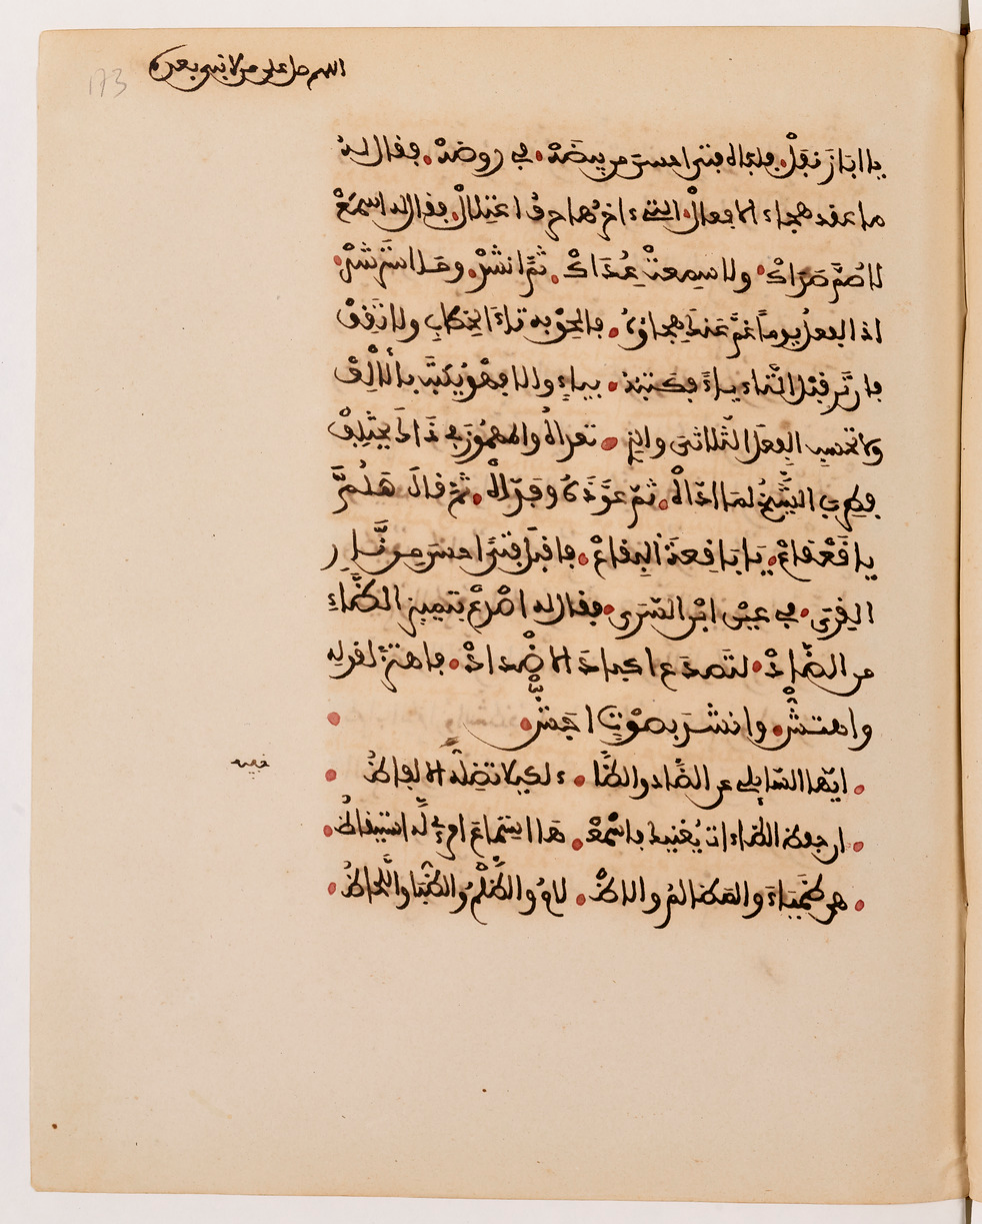 173
اللهم صل على من لا نبي بعده
يا ابا زنفل. فلباه فتى احسن من بيضة. في روضة. فقال له
ما عقد هجاء الافعال. التي ءاخرها حرف اعتلال. فقال له اسمع
لا صم صداك. ولا سمعت عداك. ثم انشد. وما استرشد.
اذا الفعل يوما غم عنك هجاؤه. فالحق به تاء الخطاب ولا تقف
فان تر قبل التاء ياء فكتبه. بياء والا فهو يكتب بالالف
ولا تحسب الفعل الثلاثي والذي. تعداه والمهموز في ذاك يختلف
فطرب الشيخ لما اداه. ثم عوذه وفداه. ثم قال هلم
يا قعقاع. يا باقعة البقاع. فاقبل فتى احسن من نار
القرى. في عين ابن السرى. فقال له اصدع بتمييز الظاء
من الضاد. لتصدع اكباد الاضداد. فاهتز لقوله
واهتش. وانشد بصوت اجش.
ايها السائلي عن الضاد والظا. ء لكيلا تضله الالفاظ
فيه
ان حفظ الظاءات يغنيك فاسمع. ها استماع امرئ له استيقاظ
هي ظمياء والمظالم والاظ. لام والظلم والظبا واللحاظ